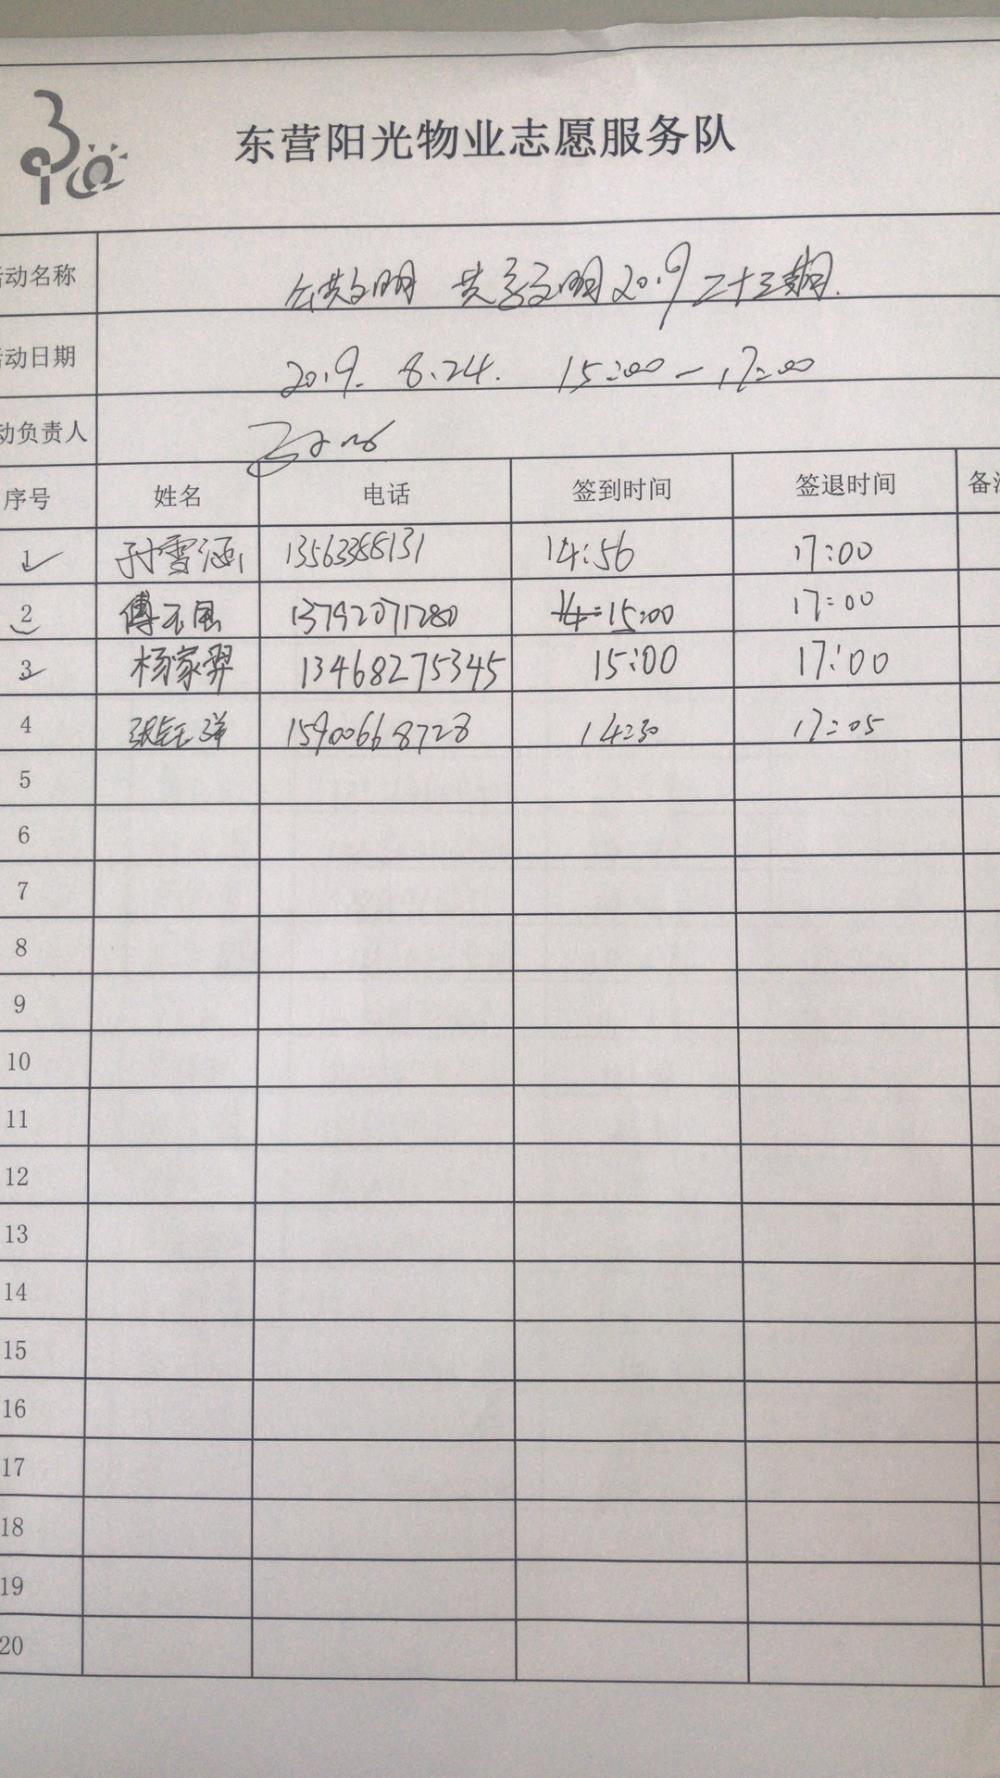 东营阳光物业志愿服务队
活动名称 公共文明 共享文明2019二十三期.
活动日期 2019. 8.24. 15:00-17:00
活动负责人
序号 姓名 电话 签到时间 签退时间 备注
1 孙雪涵 13563368131 14:56 17:00
2 傅 13792071280 15:00 17:00
3 杨家羿 13468275345 15:00 17:00
4 张钰洋 15900668728 14:30 17:05
5
6
7
8
9
10
11
12
13
14
15
16
17
18
19
20